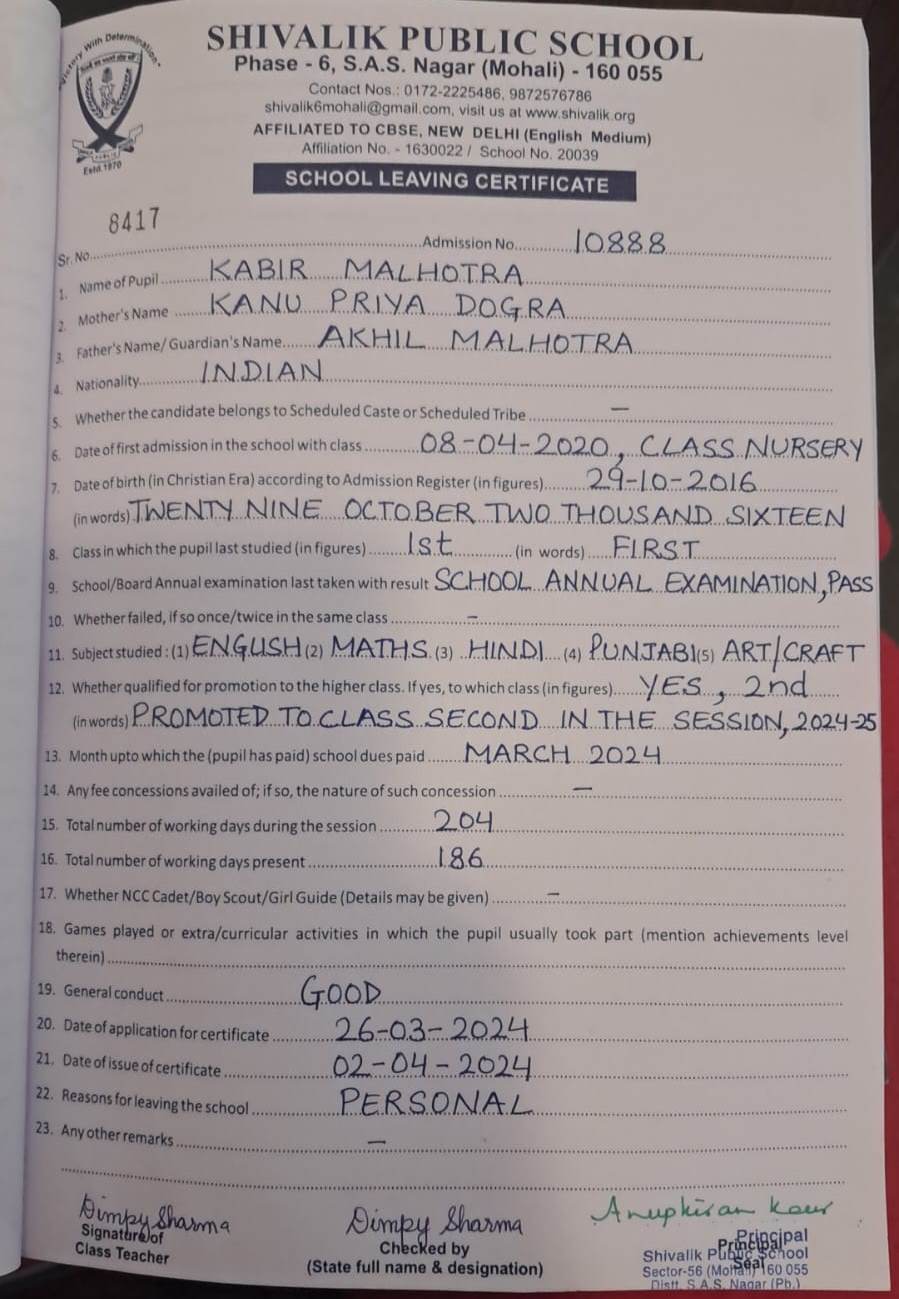 "Victory With Determination"
Estd. 1970
SHIVALIK PUBLIC SCHOOL
Phase - 6, S.A.S. Nagar (Mohali) - 160 055
Contact Nos.: 0172-2225486, 9872576786
shivalik6mohali@gmail.com, visit us at www.shivalik.org
AFFILIATED TO CBSE, NEW DELHI (English Medium)
Affiliation No. - 1630022 / School No. 20039
SCHOOL LEAVING CERTIFICATE
8417
Sr. No. Admission No. 10888
1. Name of Pupil KABIR MALHOTRA
2. Mother's Name KANU PRIYA DOGRA
3. Father's Name/ Guardian's Name AKHIL MALHOTRA
4. Nationality INDIAN
5. Whether the candidate belongs to Scheduled Caste or Scheduled Tribe —
6. Date of first admission in the school with class 08-04-2020, CLASS NURSERY
7. Date of birth (in Christian Era) according to Admission Register (in figures) 29-10-2016
(in words) TWENTY NINE OCTOBER TWO THOUSAND SIXTEEN
8. Class in which the pupil last studied (in figures) 1st (in words) FIRST
9. School/Board Annual examination last taken with result SCHOOL ANNUAL EXAMINATION, PASS
10. Whether failed, if so once/twice in the same class -
11. Subject studied : (1) ENGLISH (2) MATHS (3) HINDI (4) PUNJABI (5) ART/CRAFT
12. Whether qualified for promotion to the higher class. If yes, to which class (in figures) YES, 2nd
(in words) PROMOTED TO CLASS SECOND IN THE SESSION, 2024-25
13. Month upto which the (pupil has paid) school dues paid MARCH 2024
14. Any fee concessions availed of; if so, the nature of such concession —
15. Total number of working days during the session 204
16. Total number of working days present 186
17. Whether NCC Cadet/Boy Scout/Girl Guide (Details may be given) —
18. Games played or extra/curricular activities in which the pupil usually took part (mention achievements level
therein)
19. General conduct GOOD
20. Date of application for certificate 26-03-2024
21. Date of issue of certificate 02-04-2024
22. Reasons for leaving the school PERSONAL
23. Any other remarks —
Dimpy Sharma Dimpy Sharma Anupkiran Kaur
Signature of
Class Teacher
Checked by
(State full name & designation)
Principal
Seal
Principal
Shivalik Public School
Sector-56 (Mohali) 160 055
Distt. S.A.S. Nagar (Pb.)